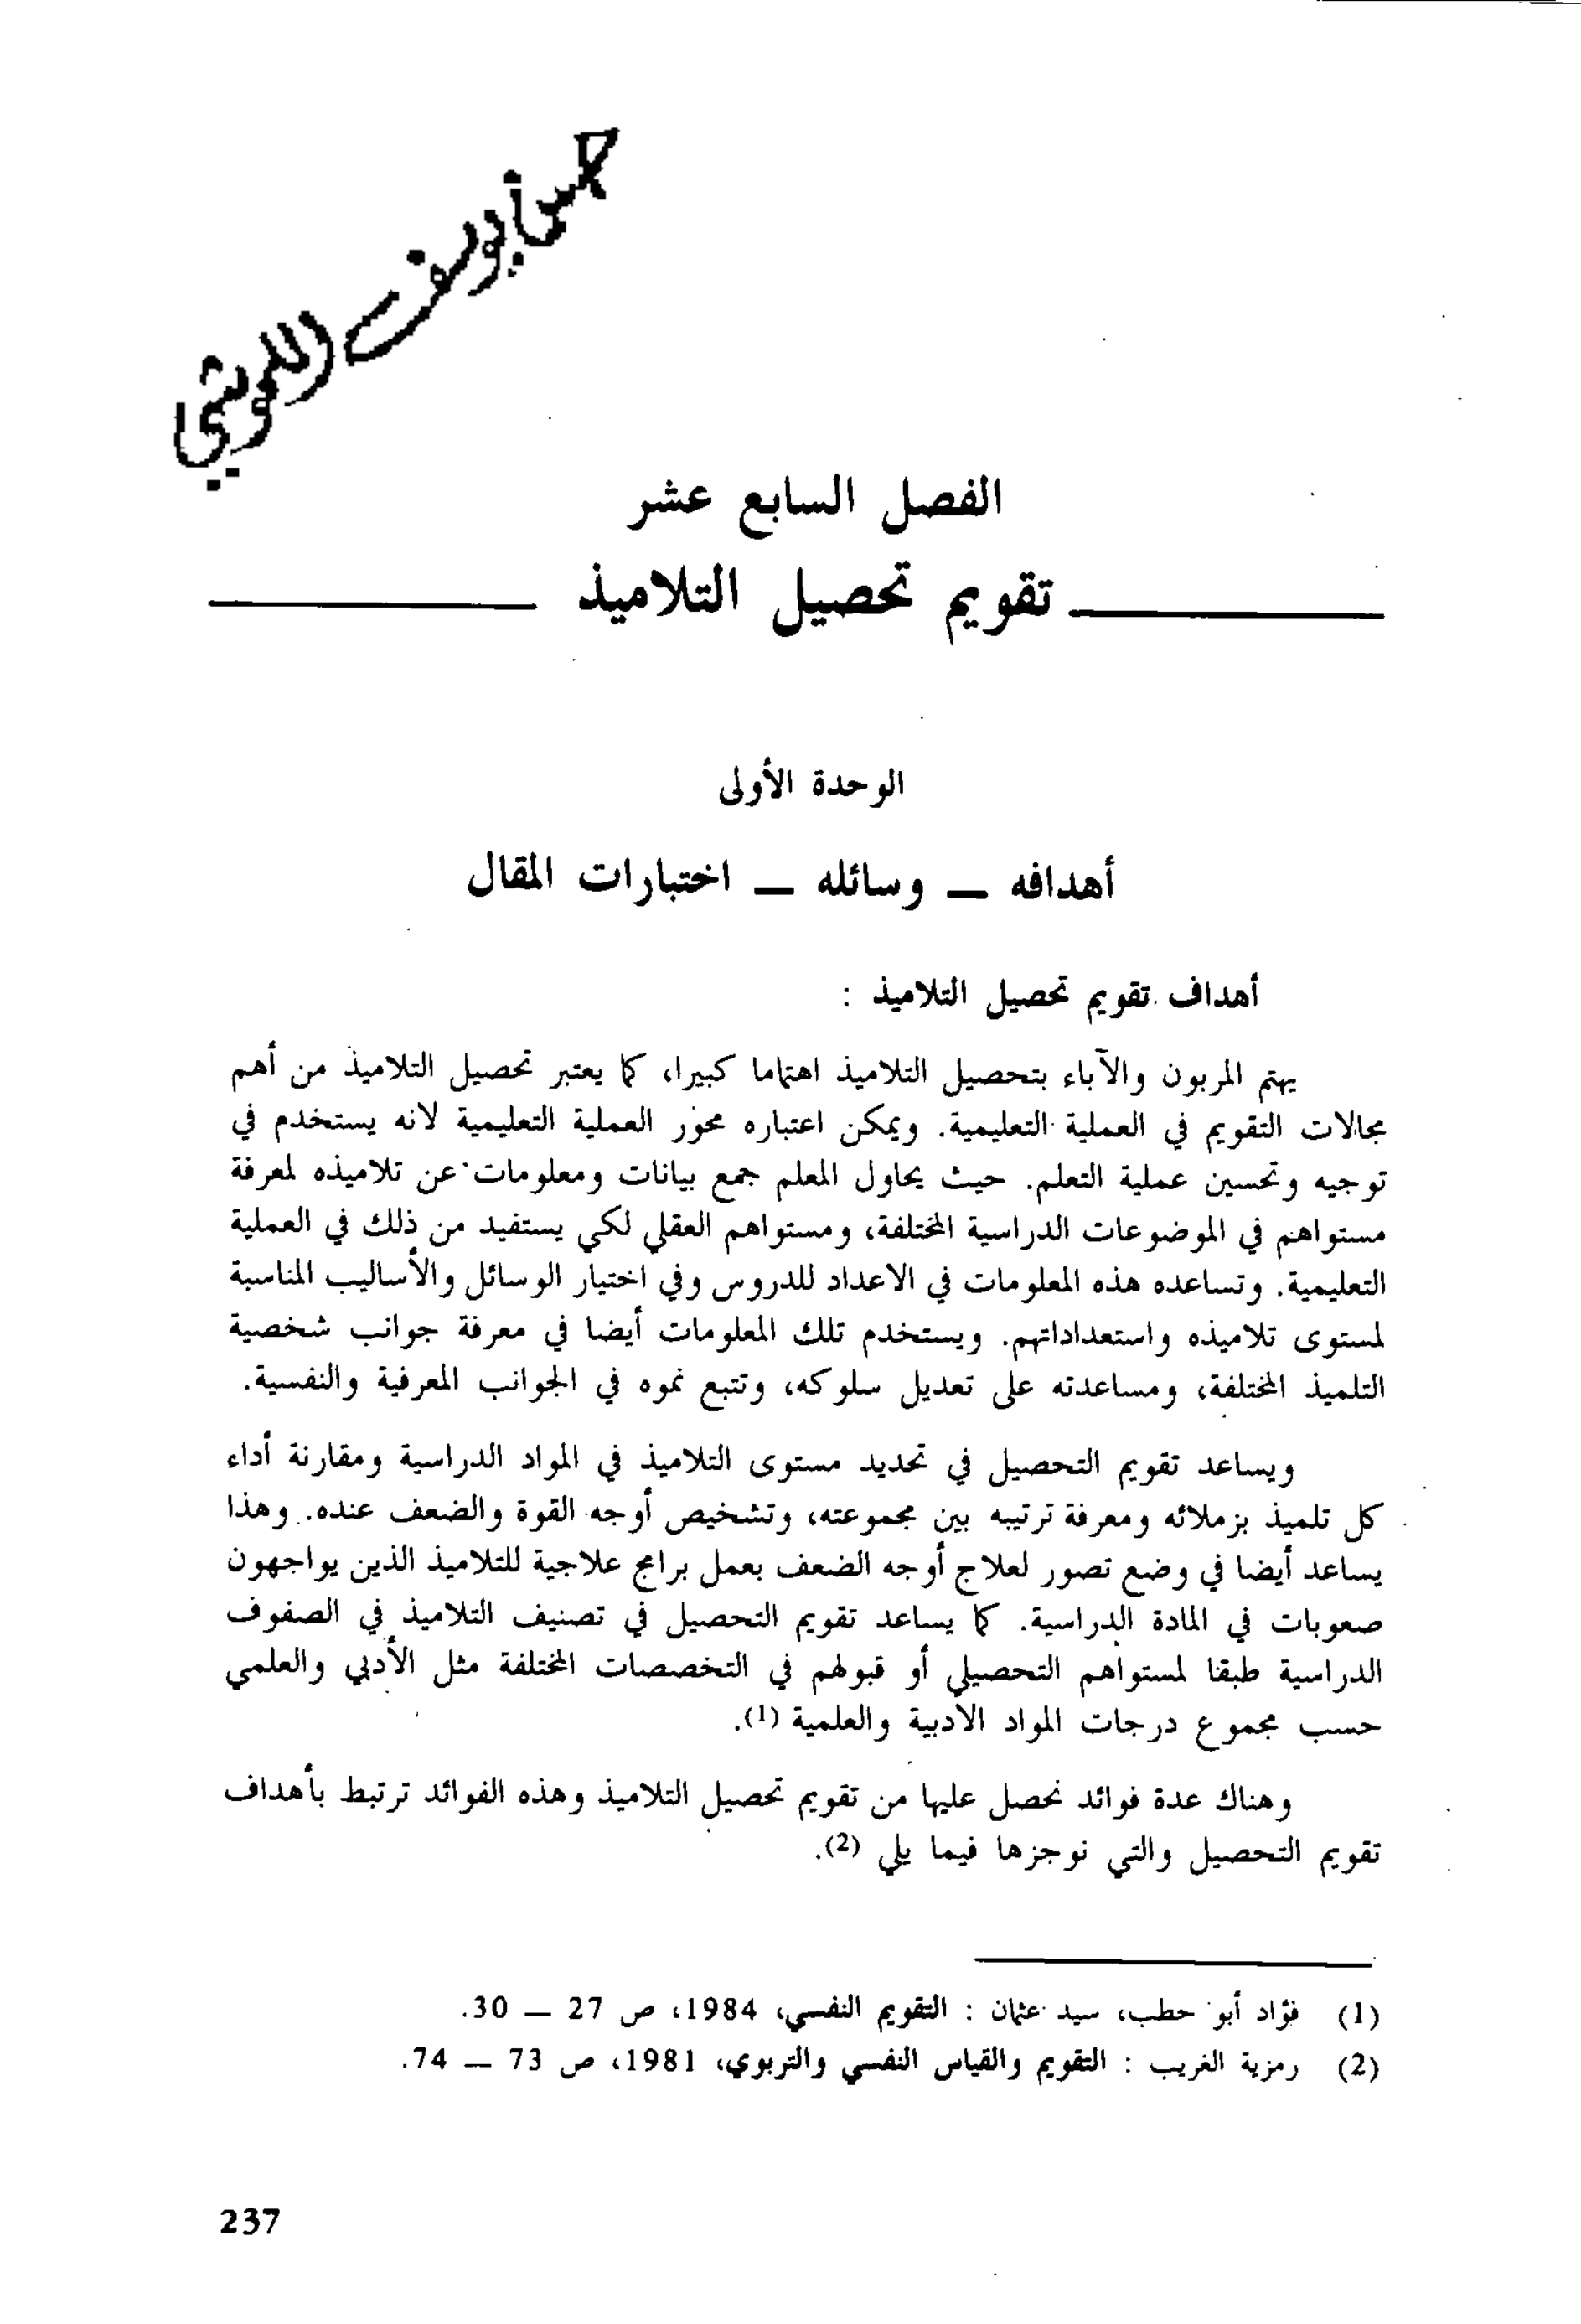 يوسف
الفصل السابع عشر
تقويم تحصيل التلاميذ
الوحدة الأولى
أهدافه — وسائله — اختبارات المقال
أهداف تقويم تحصيل التلاميذ :
يهتم المربون والآباء بتحصيل التلاميذ اهتماما كبيرا، كما يعتبر تحصيل التلاميذ من أهم
مجالات التقويم في العملية التعليمية. ويمكن اعتباره محور العملية التعليمية لانه يستخدم في
توجيه وتحسين عملية التعلم. حيث يحاول المعلم جمع بيانات ومعلومات عن تلاميذه لمعرفة
مستواهم في الموضوعات الدراسية المختلفة، ومستواهم العقلي لكي يستفيد من ذلك في العملية
التعليمية. وتساعده هذه المعلومات في الاعداد للدروس وفي اختيار الوسائل والأساليب المناسبة
لمستوى تلاميذه واستعداداتهم. ويستخدم تلك المعلومات أيضا في معرفة جوانب شخصية
التلميذ المختلفة، ومساعدته على تعديل سلوكه، وتتبع نموه في الجوانب المعرفية والنفسية.
ويساعد تقويم التحصيل في تحديد مستوى التلاميذ في المواد الدراسية ومقارنة أداء
كل تلميذ بزملائه ومعرفة ترتيبه بين مجموعته، وتشخيص أوجه القوة والضعف عنده. وهذا
يساعد أيضا في وضع تصور لعلاج أوجه الضعف بعمل برامج علاجية للتلاميذ الذين يواجهون
صعوبات في المادة الدراسية. كما يساعد تقويم التحصيل في تصنيف التلاميذ في الصفوف
الدراسية طبقا لمستواهم التحصيلي أو قبولهم في التخصصات المختلفة مثل الأدبي والعلمي
حسب مجموع درجات المواد الادبية والعلمية (1).
وهناك عدة فوائد نحصل عليها من تقويم تحصيل التلاميذ وهذه الفوائد ترتبط بأهداف
تقويم التحصيل والتي نوجزها فيما يلي (2).
(1) فؤاد أبو حطب، سيد عثمان : التقويم النفسي، 1984، ص 27 — 30.
(2) رمزية الغريب : التقويم والقياس النفسي والتربوي، 1981، ص 73 — 74.
237